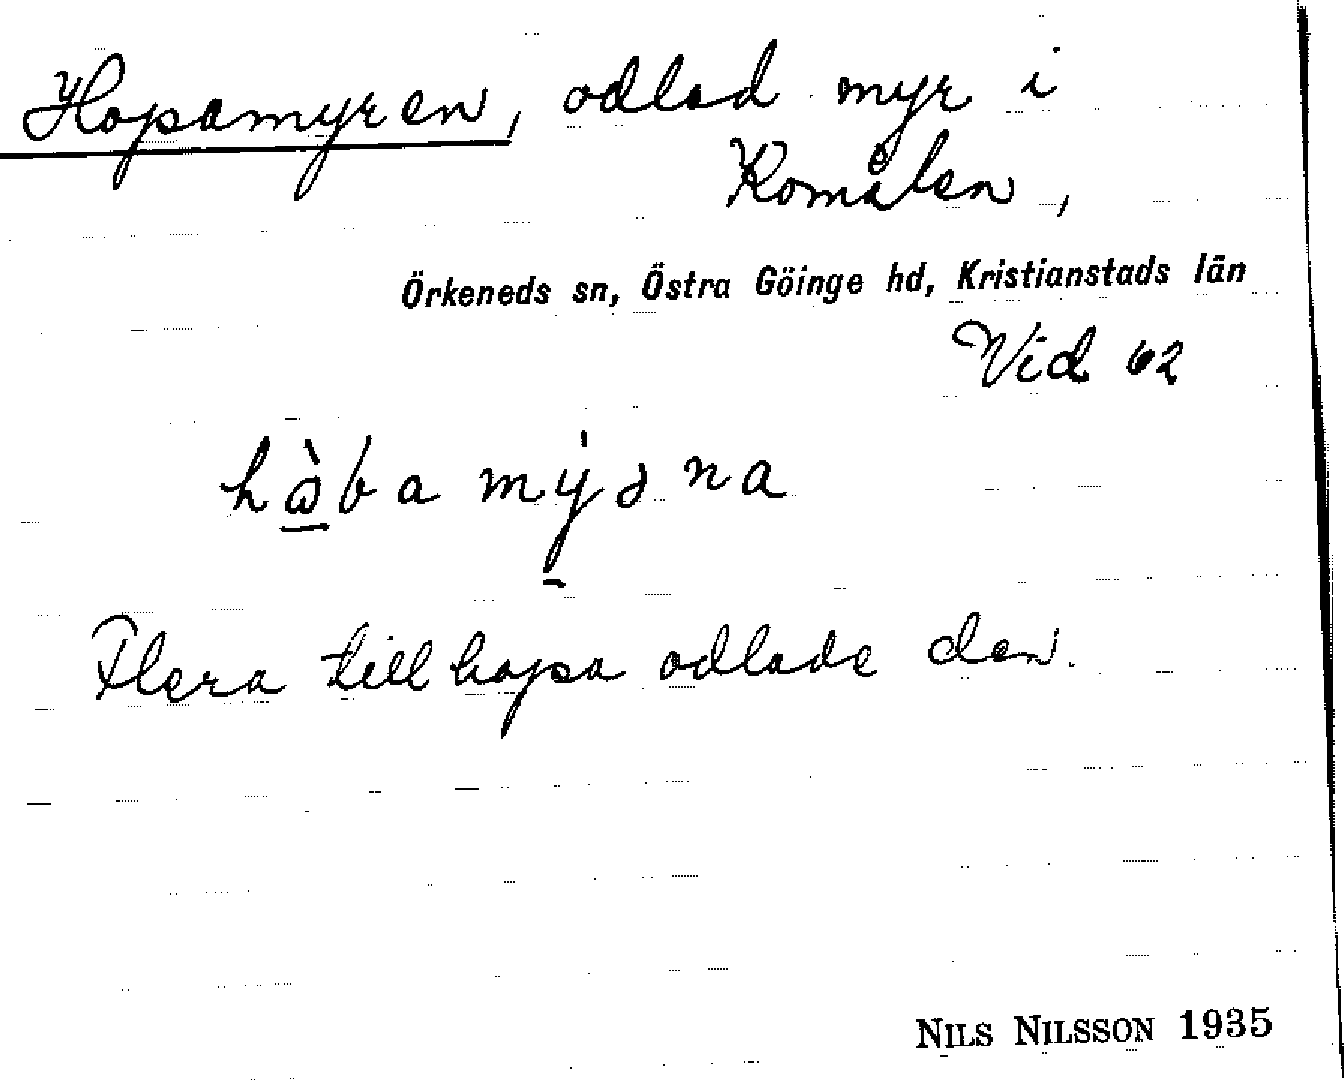 Hopamyren, odlad myr i
Komålen,
Örkeneds sn, Östra Göinge hd, Kristianstads län
Vid 62
hàba mýɹna
Flera tillhopa odlade den.
NILS NILSSON 1935